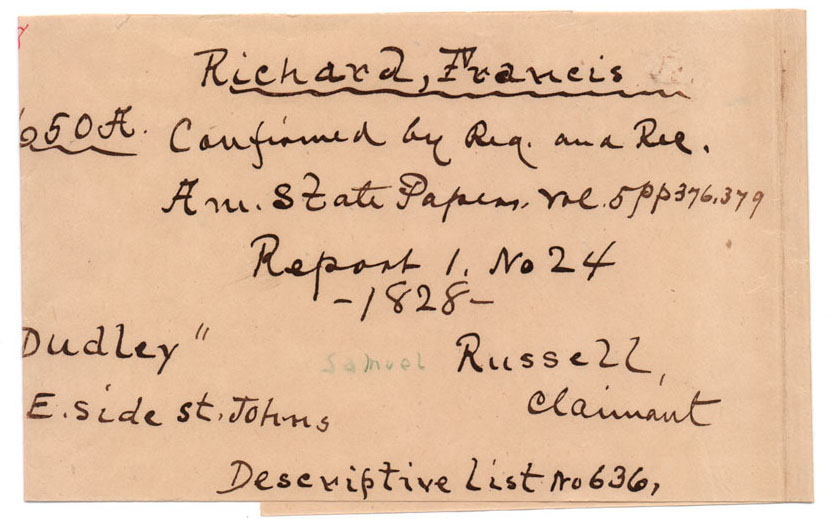 Richard, Francis
650 A. Confirmed by Reg. and Rec.
Am. State Papers. vol. 5 pp 376, 379
Report 1. No 24
-1828-
Dudley"
Samuel Russell,
E. side St. Johns
Claimant
Descriptive List No 636,